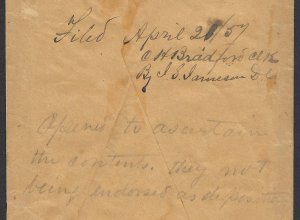 Filed April 21/57
C H Bradford Clk
By J. S. Jameson D.C.
Opened to ascertain
the contents. they not
being endorsed as deposition